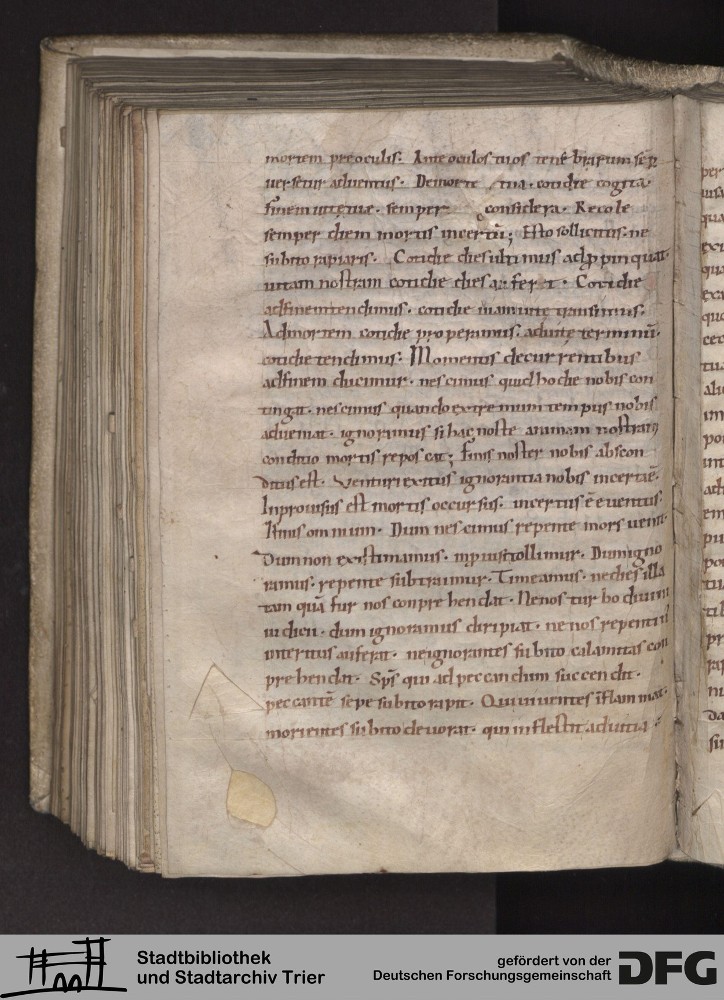 mortem preoculis. Ante oculos tuos tenebrarum sep
uersetur aduentus. Demorte tua cotidie cogita.
finem uitę tuę. semper considera. Recole
semper diem mortis incertū; Esto sollicitus. ne
subito rapiaris. Cotidie dies ultimus adpropinquat.
uitam nostram cotidie dies aufert. Cotidie
adfinem tendimus. cotidie transimus.
Admortem cotidie properamus. aduitę terminū.
cotidie tendimus. Momentis decurrentibus
adfinem ducimur. nescimus quid hodie nobis con
tingat. nescimus quando extremum tempus nobis
adueniat. ignoramus si hac nocte animam nostram
conditio mortis reposcat; finis noster nobis abscon
ditus est. Venturi exitus ignorantia nobis incertaē.
Inprouisus est mortis occursus. incertus ē euentus.
finis omnium. Dum nescimus repente mors uenit.
Dum non existimamus. tollimur. Dum igno
ramus. repente subtraimur. Timeamus. ne dies illa
tam quā fur nos conprehendat. Ne nos turbo diuini
iudicii. dum ignoramus diripiat. ne nos repentin
interitus auferat. ne ignorantes subito calamitas con
prehendat. Sp̄s qui ad peccandum succendit.
peccantē sepe subito rapit. Qui uiuentes īflammat.
morientes subito deuorat. qui inflectit aduitia
per
qua
exi
qua
exa
quo
cec
tua
alio
im
por
int
adi
em
pu
por
tu
til
pr
rap
ni
da
sin
Stadtbibliothek
und Stadtarchiv Trier
gefördert von der
Deutschen Forschungsgemeinschaft
DFG